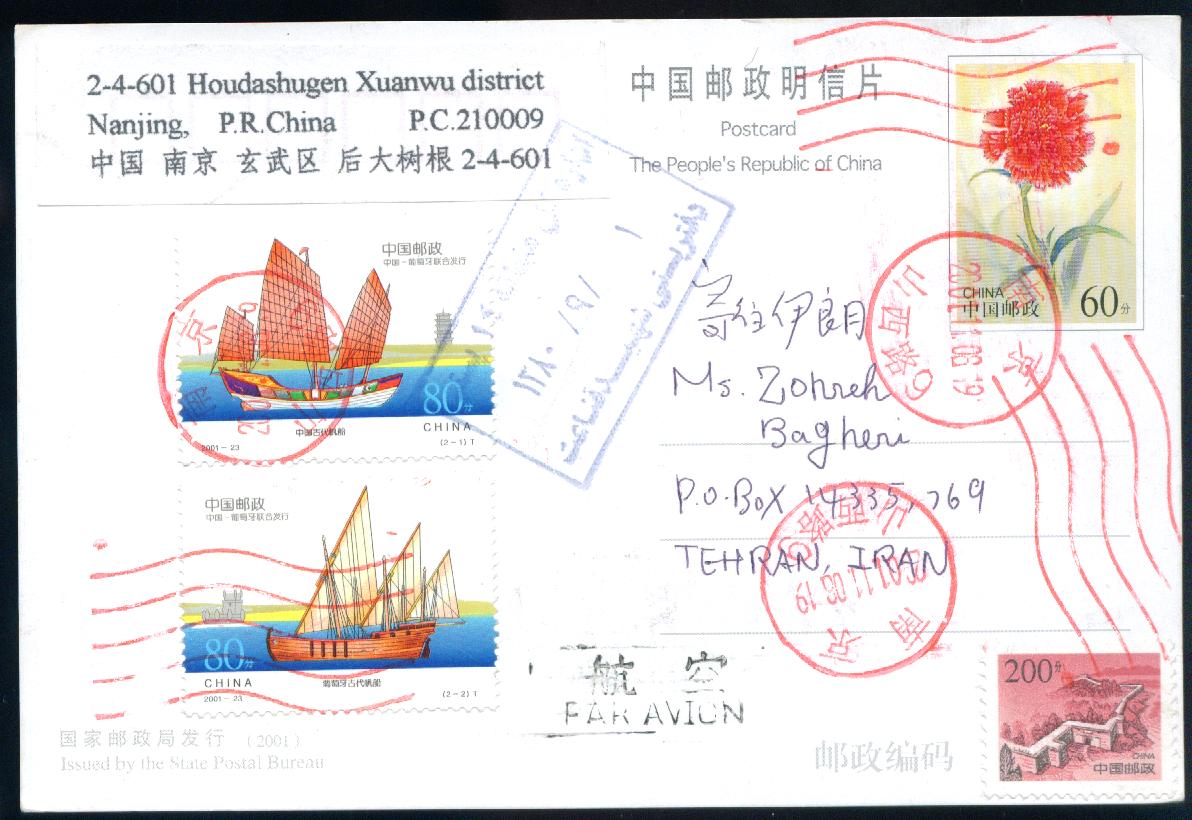 2-4-601 Houdashugen Xuanwu district
Nanjing, P.R.China P.C.210009
中国 南京 玄武区 后大树根 2-4-601
中国邮政明信片
Postcard
The People's Republic of China
CHINA
中国邮政
60分
中国邮政
中国-葡萄牙联合发行
80分
CHINA
中国古代帆船
2001-23
(2-1)T
中国邮政
中国-葡萄牙联合发行
80分
CHINA
2001-23
葡萄牙古代帆船
(2-2)T
寄往伊朗
Ms. Zohreh
Bagheri
P.O.Box 14335, 769
TEHRAN, IRAN
南京
山西路
2001.11.03.19
南京
山西路
2001.11.03.19
۱۳۸۰ /۹/ ۱
航 空
PAR AVION
200分
CHINA
中国邮政
国家邮政局发行 (2001)
Issued by the State Postal Bureau
邮政编码